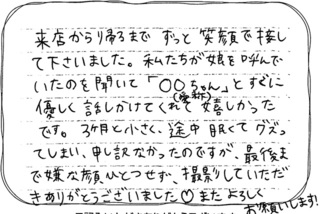 来店から帰るまで ずっと 笑顔で接し
て下さいました。私たちが娘を呼んで
いたのを聞いて「〇〇ちゃん」とすぐに
(愛称)
優しく 話しかけてくれて 嬉しかった
です。3ヶ月と小さく、途中 眠くて グズッ
てしまい、申し訳なかったのですが、最後ま
で嫌な顔ひとつせず、撮影していただ
きありがとうございました♡ また よろしく
お願いします!